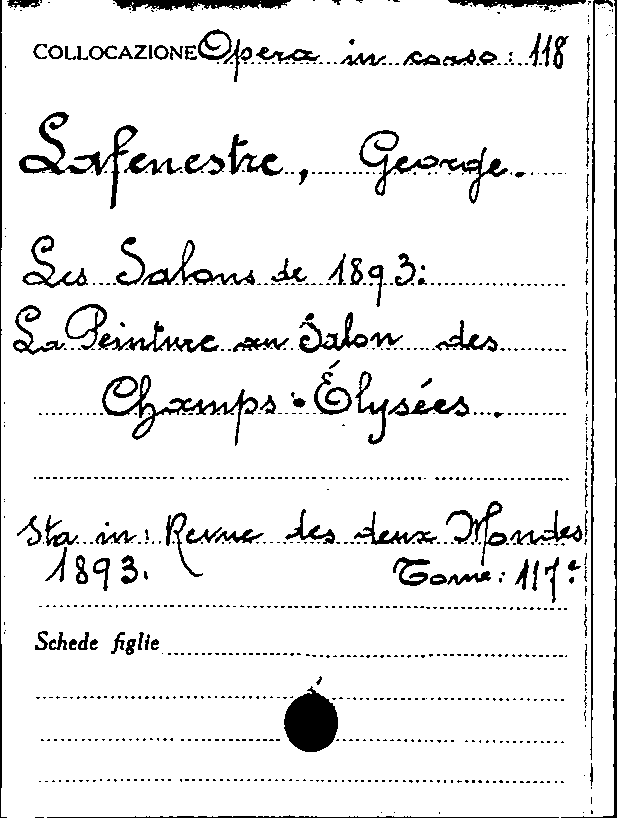 COLLOCAZIONE Opera in corso: 118
Lafenestre, George.
Les Salons de 1893:
La Peinture au Salon des
Champs-Élysées.
Sta in: Revue des deux Mondes
1893. Tome: 117.e
Schede figlie